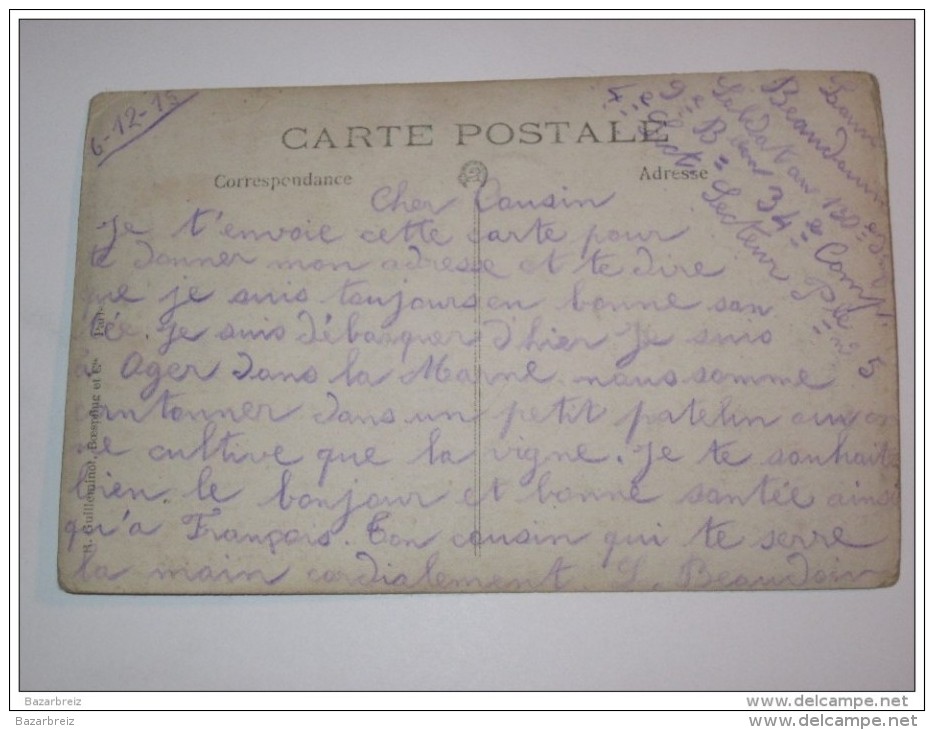 6-12-15
CARTE POSTALE
Correspondance
Adresse
Louis
Beaudouin
Soldat au 130e
9e Bon 34e Comp.
4e Sect. Secteur P. n° 5
Cher Cousin
Je t'envoie cette carte pour
te donner mon adresse et te dire
que je suis toujours en bonne san
tée. je suis débarquer d'hier Je suis
à Oger dans la Marne nous somme
cantonner dans un petit patelin ou on
ne cultive que la vigne. Je te souhaite
bien le bonjour et bonne santée ainsi
qu'a François. Ton cousin qui te serre
la main cordialement L. Beaudoin
R. Guilleminot, Bœspflug et Cie Paris
Bazarbreiz
www.delcampe.net
Bazarbreiz
www.delcampe.net